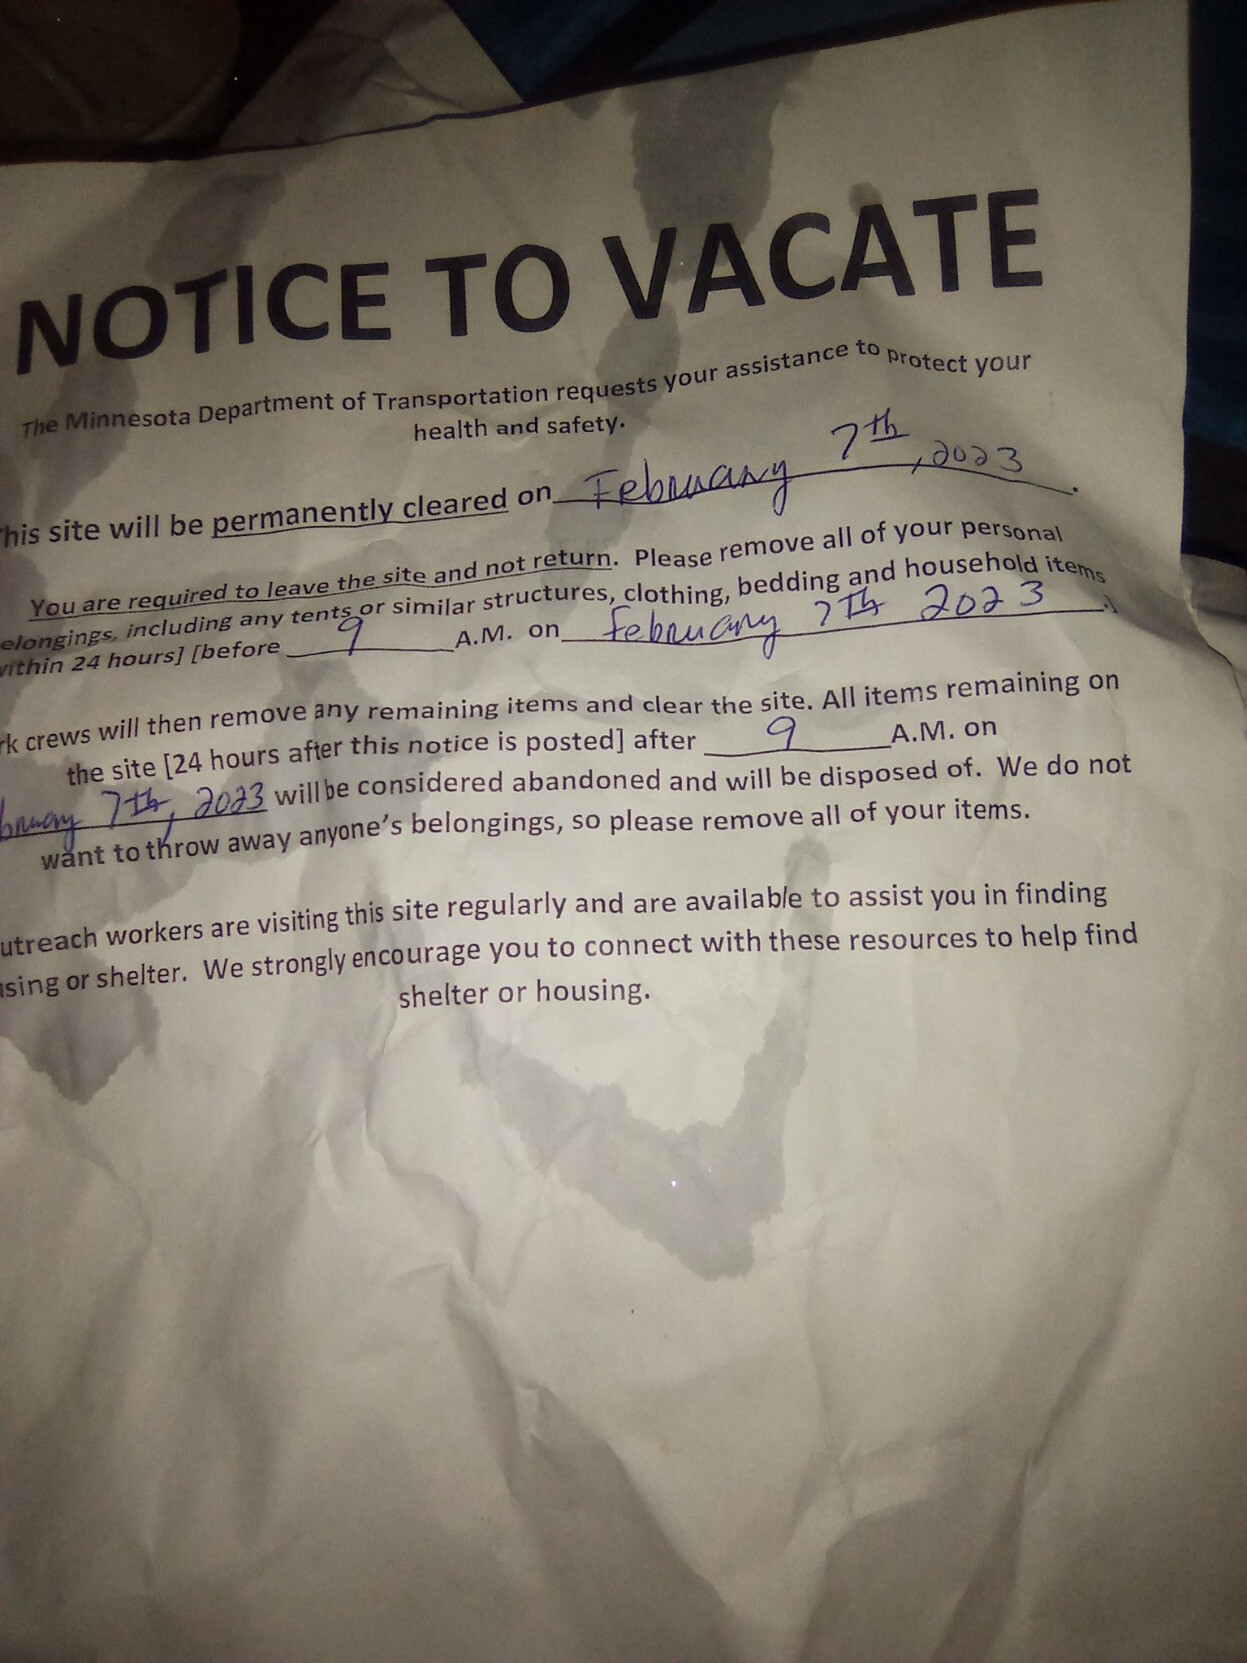 NOTICE TO VACATE
The Minnesota Department of Transportation requests your assistance to protect your
health and safety.
his site will be permanently cleared on February 7th, 2023.
You are required to leave the site and not return. Please remove all of your personal
elongings, including any tents or similar structures, clothing, bedding and household items
ithin 24 hours] [before 9 A.M. on February 7th 2023.]
rk crews will then remove any remaining items and clear the site. All items remaining on
the site [24 hours after this notice is posted] after 9 A.M. on
bruary 7th, 2023 will be considered abandoned and will be disposed of. We do not
want to throw away anyone's belongings, so please remove all of your items.
utreach workers are visiting this site regularly and are available to assist you in finding
using or shelter. We strongly encourage you to connect with these resources to help find
shelter or housing.